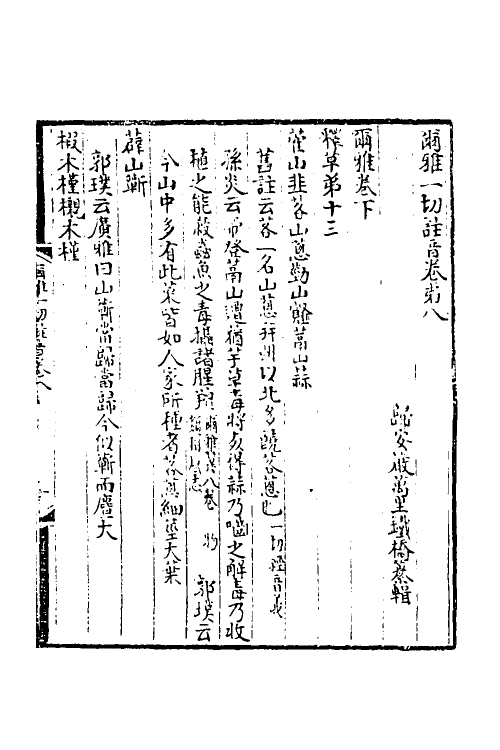 爾雅一切註音卷第八
歸安嚴萬里鐵橋纂輯
爾雅卷下
釋草第十三
藿山韭茖山蔥勤山䪥蒚山蒜
舊註云茖一名山蔥幷州以北多饒茖蔥也一切經音義
孫炎云帝登蒚山遭蕕芋草毒將死得蒜乃嚙之解毒乃收
植之能殺蟲魚之毒攝諸腥羶爾雅翼八卷 郭璞云
今山中多有此菜皆如人家所種者茖蔥細莖大葉
薜山蘄
郭璞云廣雅曰山蘄當歸當歸今似蘄而麤大
椵木槿櫬木槿
爾雅一切註音卷八